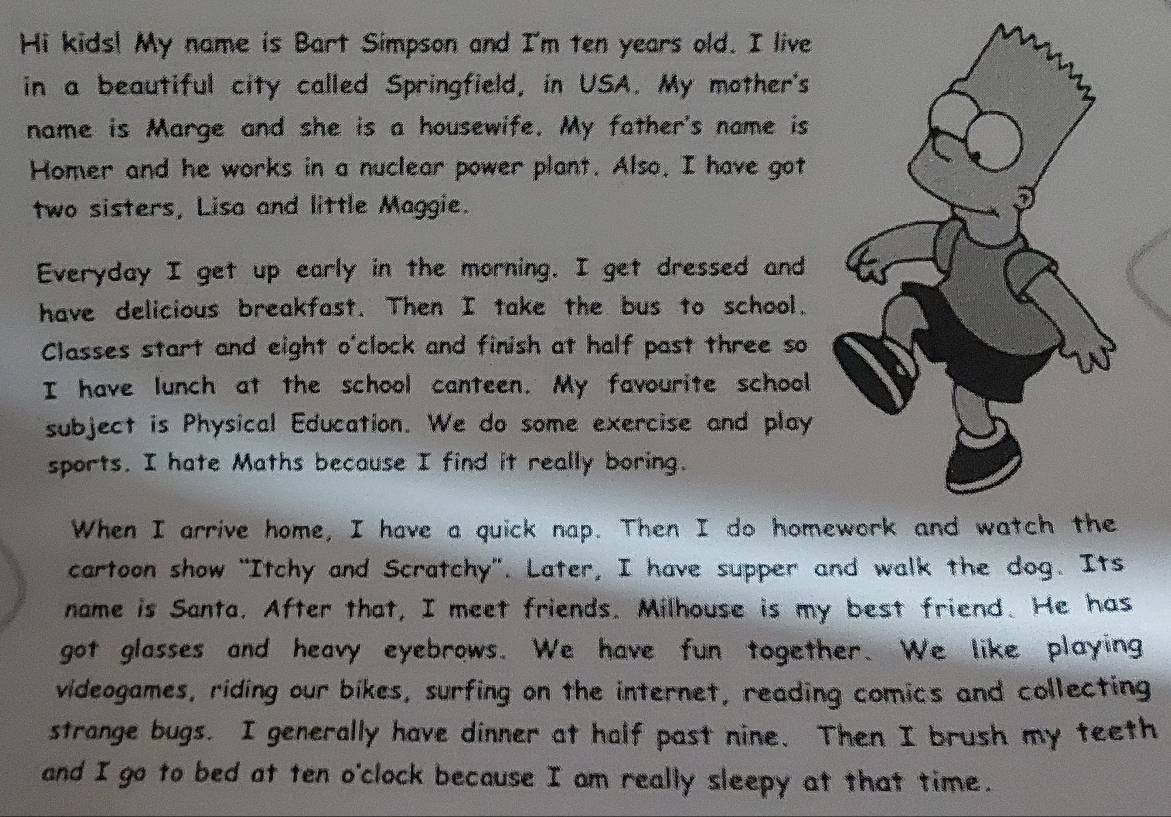 Hi kids! My name is Bart Simpson and I'm ten years old. I live
in a beautiful city called Springfield, in USA. My mother's
name is Marge and she is a housewife. My father's name is
Homer and he works in a nuclear power plant. Also, I have got
two sisters, Lisa and little Maggie.
Everyday I get up early in the morning. I get dressed and
have delicious breakfast. Then I take the bus to school.
Classes start and eight o'clock and finish at half past three so
I have lunch at the school canteen. My favourite school
subject is Physical Education. We do some exercise and play
sports. I hate Maths because I find it really boring.
When I arrive home, I have a quick nap. Then I do homework and watch the
cartoon show "Itchy and Scratchy". Later, I have supper and walk the dog. Its
name is Santa. After that, I meet friends. Milhouse is my best friend. He has
got glasses and heavy eyebrows. We have fun together. We like playing
videogames, riding our bikes, surfing on the internet, reading comics and collecting
strange bugs. I generally have dinner at half past nine. Then I brush my teeth
and I go to bed at ten o'clock because I am really sleepy at that time.